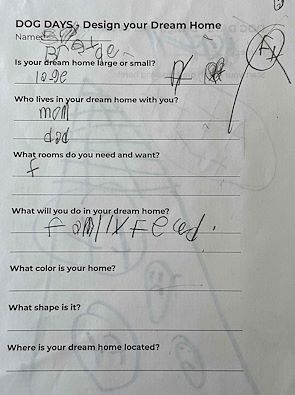 DOG DAYS - Design your Dream Home
Name
Is your dream home large or small?
Who lives in your dream home with you?
mom
dad
What rooms do you need and want?
f
What will you do in your dream home?
What color is your home?
What shape is it?
Where is your dream home located?